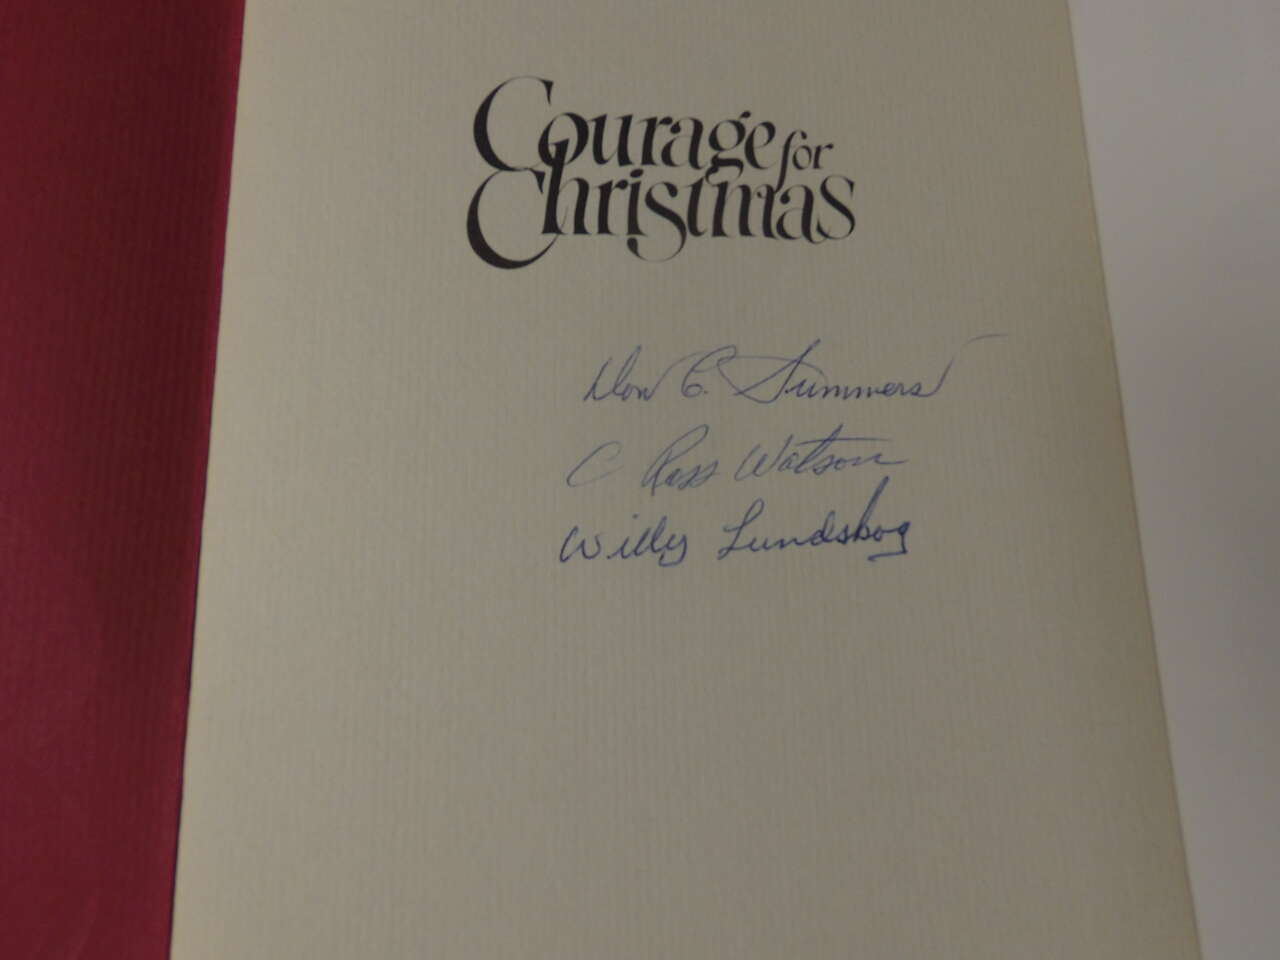 Courage for
Christmas
Don C. Summers
C Ross Watson
Willy Lundskog